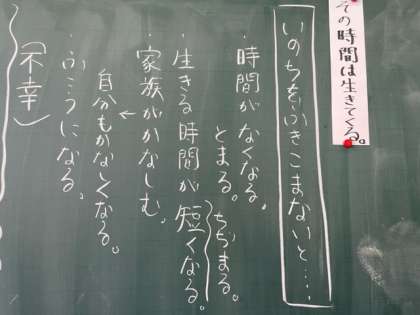 その時間は生きてくる。
いのちをふきこまないと……
・時間がなくなる。
とまる。
ちぢまる。
・生きる時間が短くなる。
・家族がかなしむ。
←
自分もかなしくなる。
・ふこうになる。
(不幸)